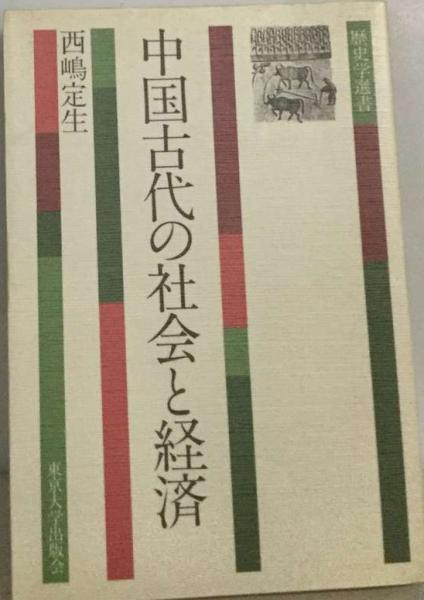 歴史学選書
中国古代の社会と経済
西嶋定生
東京大学出版会